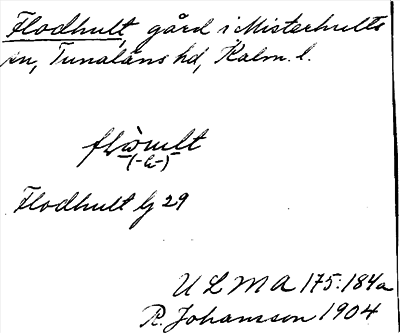 Flodhult, gård i Misterhults
sn, Tunaläns hd, Kalm. l.
(-h-)
Flodhult lj 29
U L M A 175:184a
R. Johansson 1904